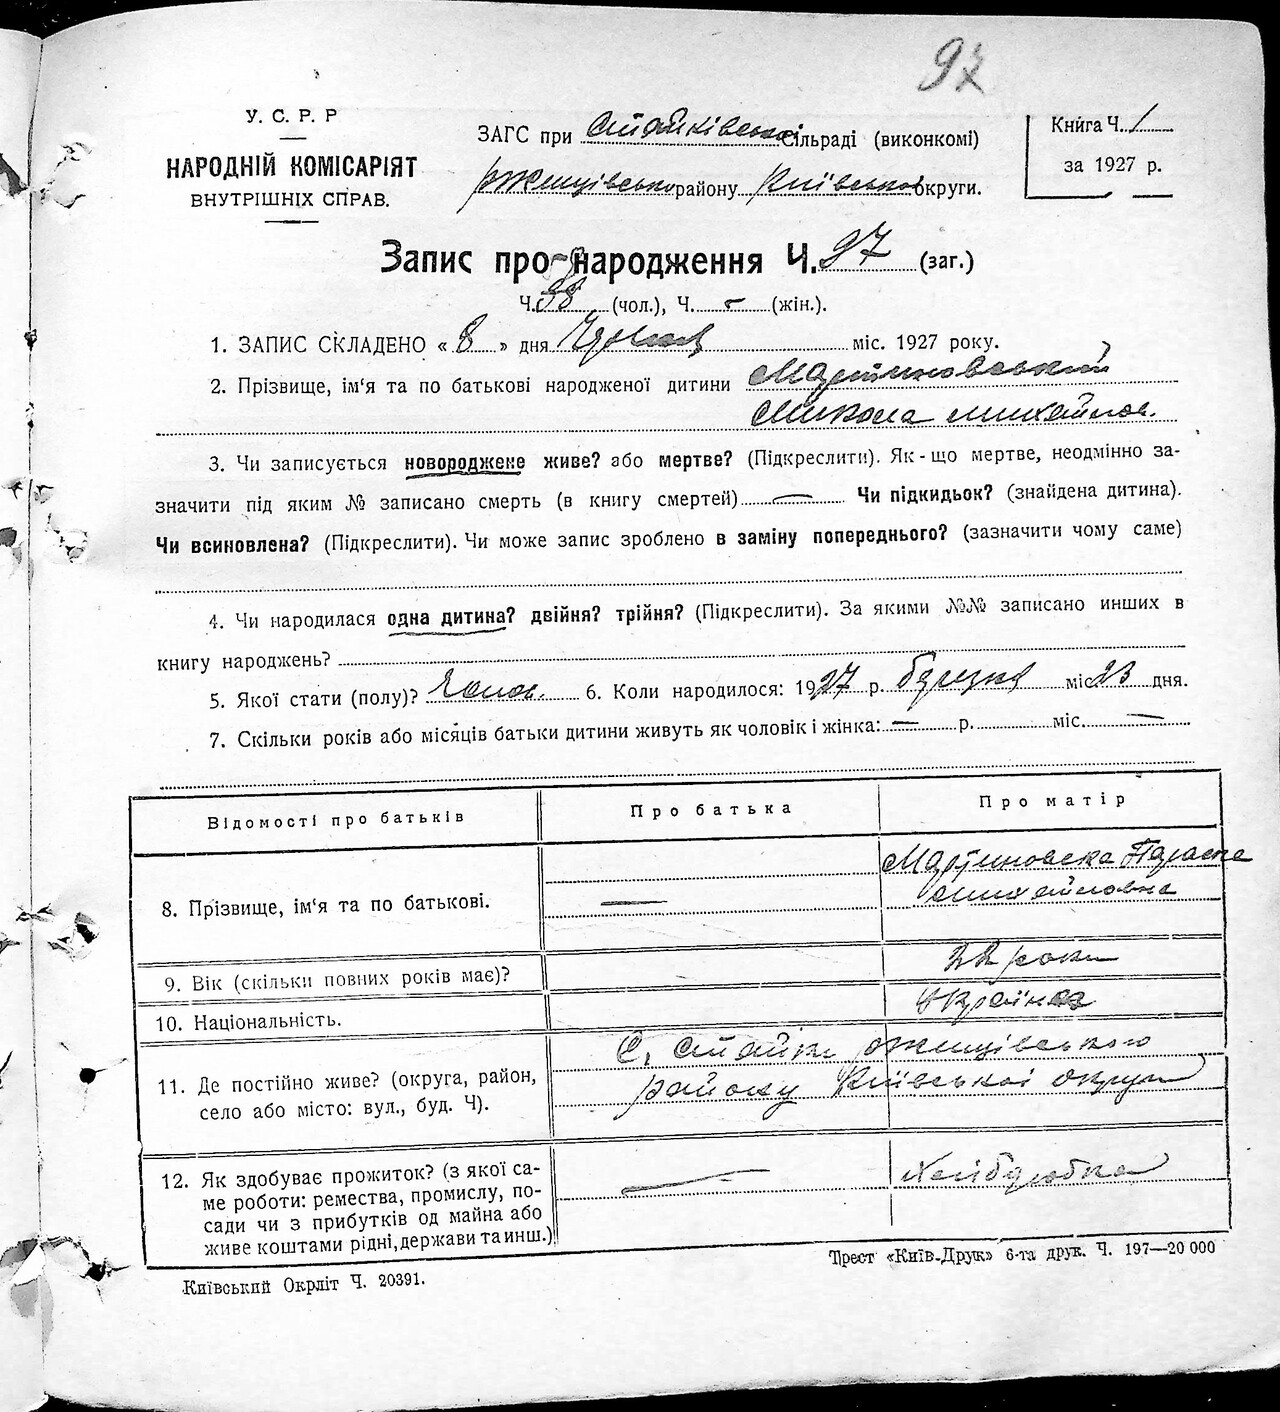 97
У. С. Р. Р
НАРОДНІЙ КОМІСАРІЯТ
ВНУТРІШНІХ СПРАВ.
ЗАГС при Стайківській сільраді (виконкомі)
Ржищівського району Київської округи.
Книга Ч. 1
за 1927 р.
Запис про народження Ч. 97 (заг.)
Ч. 38 (чол.), Ч. - (жін.).
1. ЗАПИС СКЛАДЕНО « 8 » дня міс. 1927 року.
2. Прізвище, ім'я та по батькові народженої дитини Мартиновський
Микола Михайлов.
3. Чи записується новороджене живе? або мертве? (Підкреслити). Як-що мертве, неодмінно за-
значити під яким № записано смерть (в книгу смертей) — Чи підкидьок? (знайдена дитина).
Чи всиновлена? (Підкреслити). Чи може запис зроблено в заміну попереднього? (зазначити чому саме)
4. Чи народилася одна дитина? двійня? трійня? (Підкреслити). За якими №№ записано инших в
книгу народжень?
5. Якої стати (полу)? Чолов. 6. Коли народилося: 1927 р. березня міс. 23 дня.
7. Скільки років або місяців батьки дитини живуть як чоловік і жінка: — р. міс. —
Відомості про батьків Про батька Про матір
8. Прізвище, ім'я та по батькові. — Мартиновска Параска
Михайловна
9. Вік (скільки повних років має)? 22 роки
10. Національність. Українка
11. Де постійно живе? (округа, район,
село або місто: вул., буд. Ч).
С. Стайки Ржищівського
району Київської округи
12. Як здобуває прожиток? (з якої са-
ме роботи: ремества, промислу, по-
сади чи з прибутків од майна або
живе коштами рідні, держави та инш.)
— Хліборобка
Київський Окрліт Ч. 20391.
Трест «Київ-Друк» 6-та друк. Ч. 197—20 000